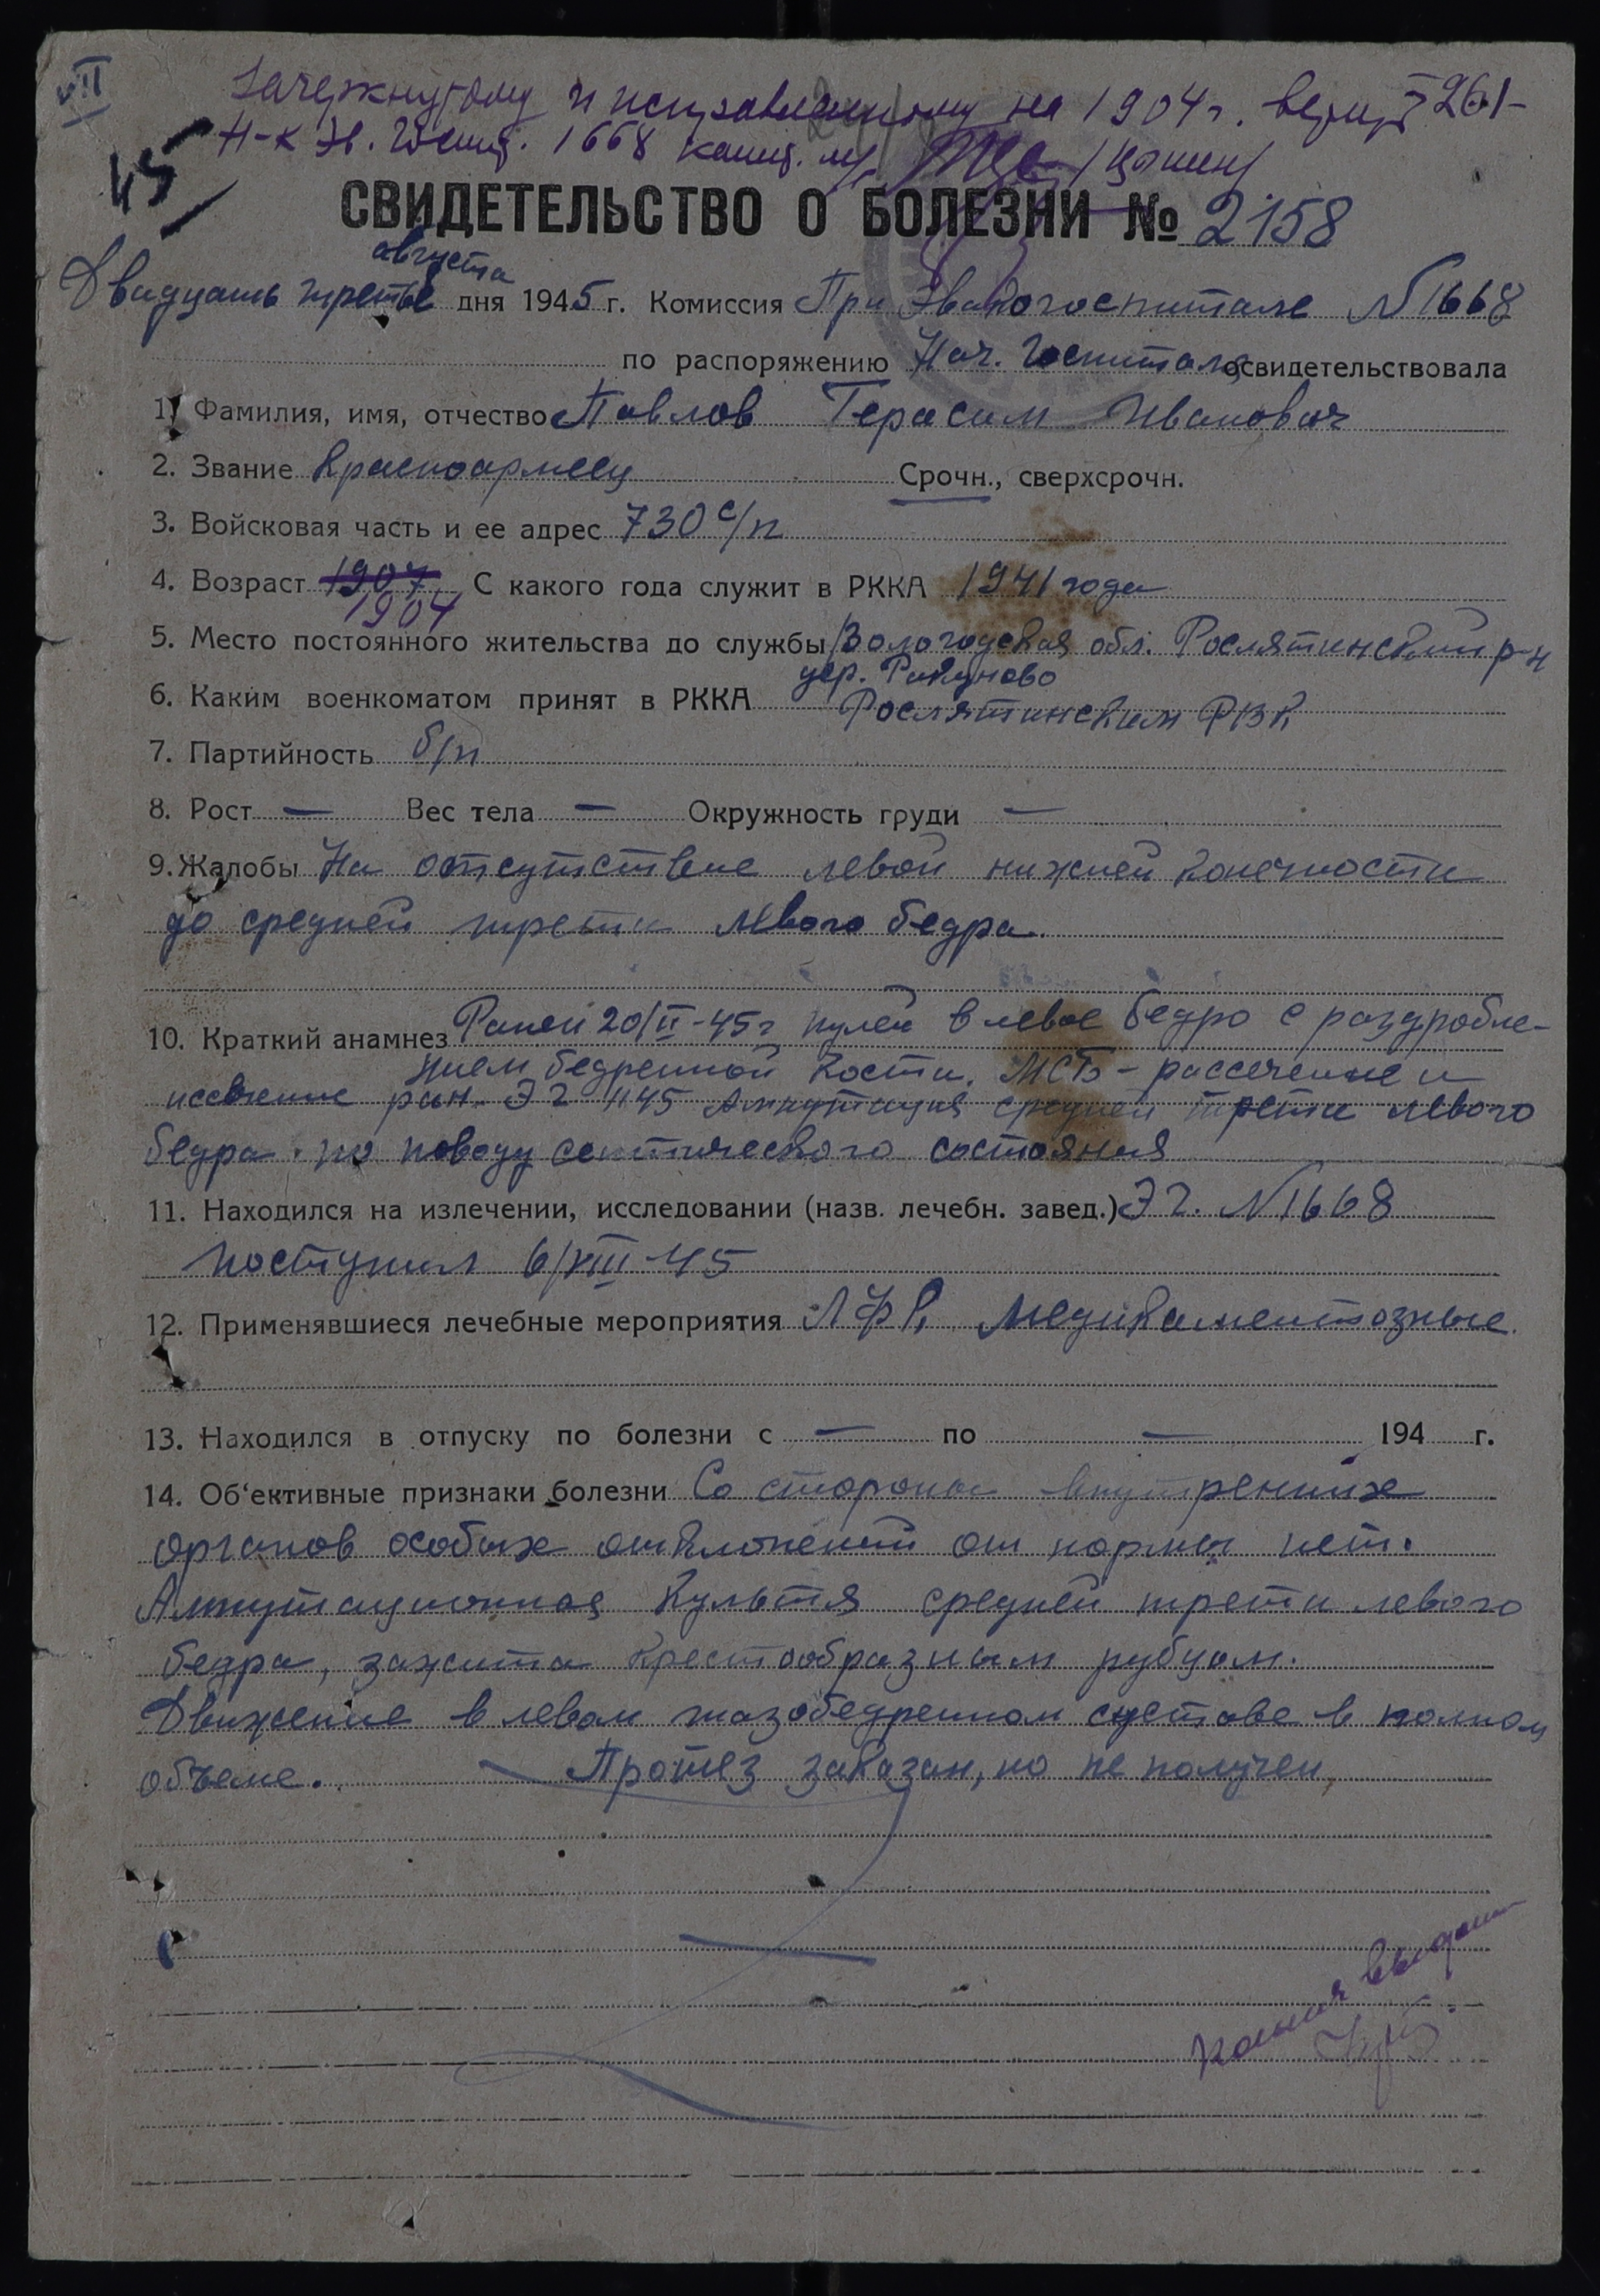 VII
Зачеркнутому и исправленному на 1904 г. верить 261-
Н-к Эв. Госпит. 1668 капит. м/с
45
СВИДЕТЕЛЬСТВО О БОЛЕЗНИ № 2158
августа
Двадцать третье дня 1945 г. Комиссия При Эвакогоспитале № 1668
по распоряжению Нач. Госпиталя освидетельствовала
1. Фамилия, имя, отчество Павлов Герасим Иванович
2. Звание Красноармеец Срочн., сверхсрочн.
3. Войсковая часть и ее адрес 730 с/п
4. Возраст 1907 С какого года служит в РККА 1941 года
1904
5. Место постоянного жительства до службы Вологодская обл. Рослятинский р-н
дер. Ракуново
6. Каким военкоматом принят в РККА Рослятинским РВК
7. Партийность б/п
8. Рост — Вес тела — Окружность груди —
9. Жалобы На отсутствие левой нижней конечности
до средней трети левого бедра.
10. Краткий анамнез Ранен 20/II-45 г пулей в левое бедро с раздробле-
нием бедренной кости. МСБ - рассечение и
иссечение ран. ЭГ 1145 Ампутация средней трети левого
бедра по поводу септического состояния
11. Находился на излечении, исследовании (назв. лечебн. завед.) ЭГ. № 1668
поступил 6/VIII-45
12. Применявшиеся лечебные мероприятия ЛФК, медикаментозные.
13. Находился в отпуску по болезни с — по — 194 г.
14. Об'ективные признаки болезни Со стороны внутренних
органов особых отклонений от нормы нет.
Ампутационная культя средней трети левого
бедра, зажита крестообразным рубцом.
Движение в левом тазобедренном суставе в полном
объеме. — Протез заказан, но не получен,
копия выдана